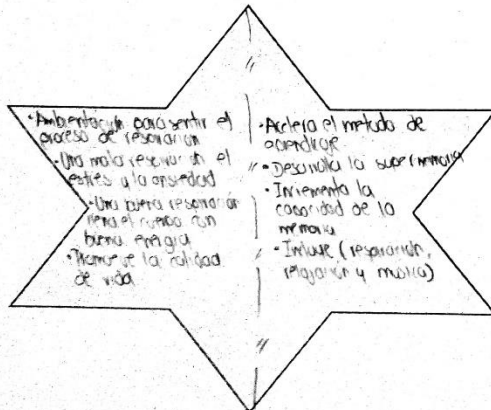 • Ambientación para sentir el
proceso de respiración
• Una mala respiración el
estrés y la ansiedad
• Una buena respiración
llena el cuerpo con
buena energía
de la calidad
de vida
• Acelera el metodo de
aprendizaje
• Desarrolla la supermemoria
• Incrementa la
capacidad de la
memoria
• Incluye (respiración,
relajación y musica)